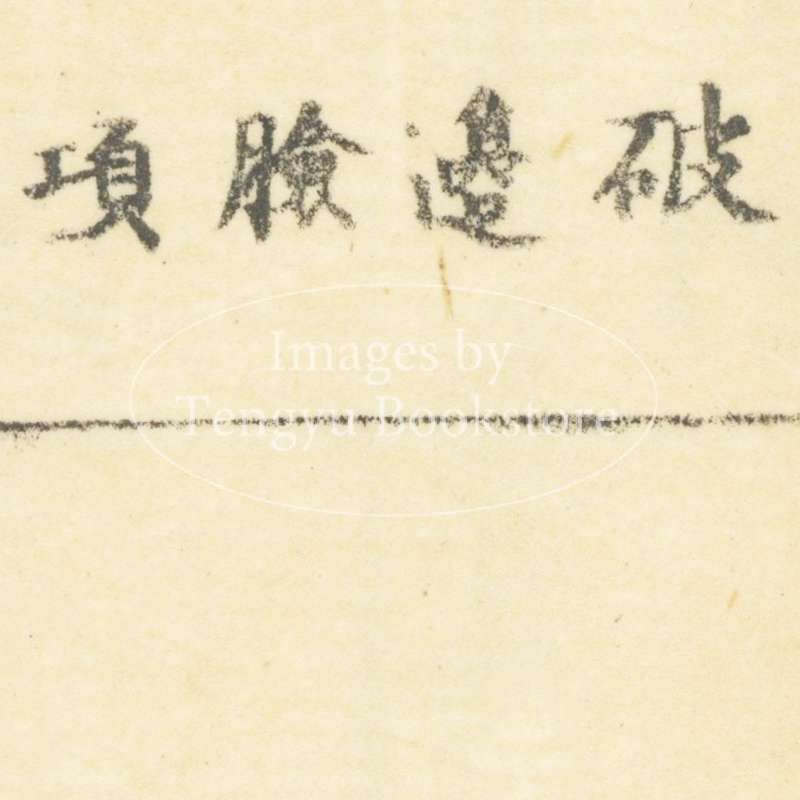 破邊臉項
Images by
Tengyu Bookstore